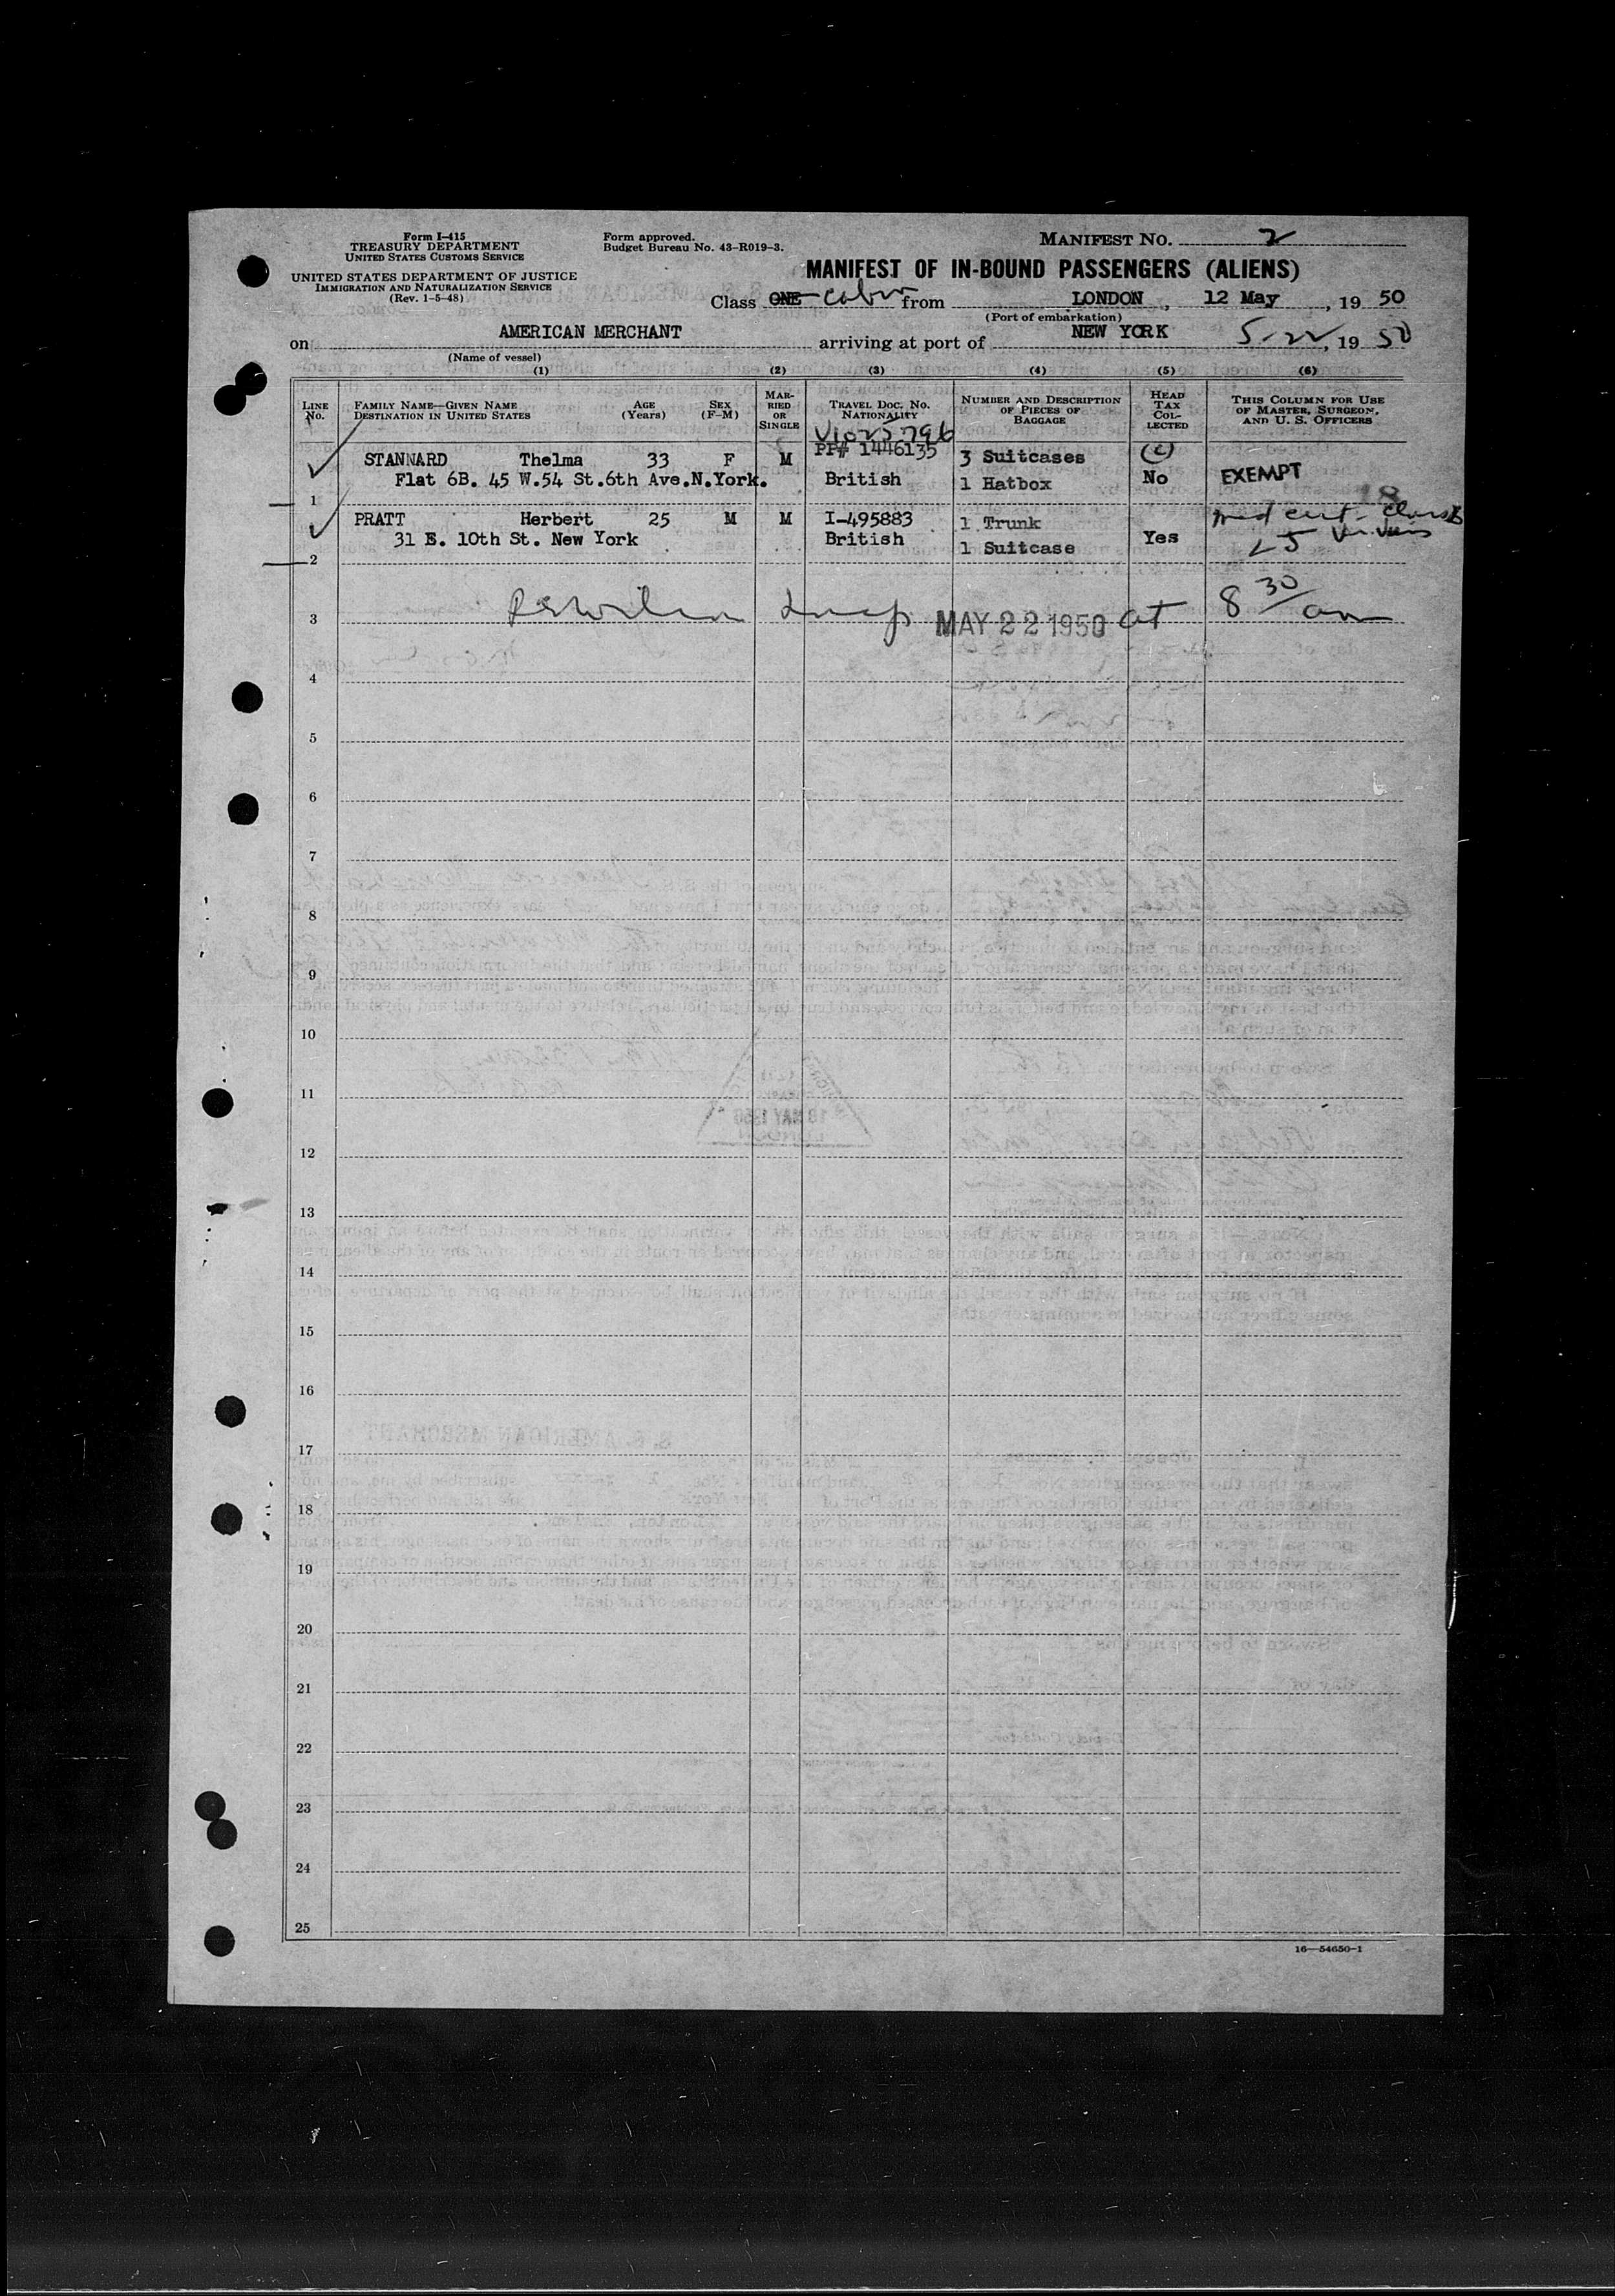 Form I-415
TREASURY DEPARTMENT
UNITED STATES CUSTOMS SERVICE
UNITED STATES DEPARTMENT OF JUSTICE
IMMIGRATION AND NATURALIZATION SERVICE
(Rev. 1-5-48)
Form approved.
Budget Bureau No. 43-R019-3.
MANIFEST NO. 2
MANIFEST OF IN-BOUND PASSENGERS (ALIENS)
Class ONE cabin from LONDON, 12 May, 19 50
(Port of embarkation)
on AMERICAN MERCHANT arriving at port of NEW YORK 5-22, 19 50
(Name of vessel)
(1) (2) (3) (4) (5) (6)
LINE No. FAMILY NAME—GIVEN NAME DESTINATION IN UNITED STATES AGE (Years) SEX (F-M) MARRIED OR SINGLE TRAVEL DOC. NO. NATIONALITY NUMBER AND DESCRIPTION OF PIECES OF BAGGAGE HEAD TAX COLLECTED THIS COLUMN FOR USE OF MASTER, SURGEON, AND U. S. OFFICERS
V1025796
STANNARD Thelma 33 F M PP# 1446135 3 Suitcases
1 Flat 6B. 45 W.54 St.6th Ave.N.York. British 1 Hatbox No EXEMPT
PRATT Herbert 25 M M I-495883 1 Trunk med cert - Class B
2 31 E. 10th St. New York British 1 Suitcase Yes
3 Insp MAY 22 1950 at 8 30 am
4
5
6
7
8
9
10
11
12
13
14
15
16
17
18
19
20
21
22
23
24
25
16—54650-1